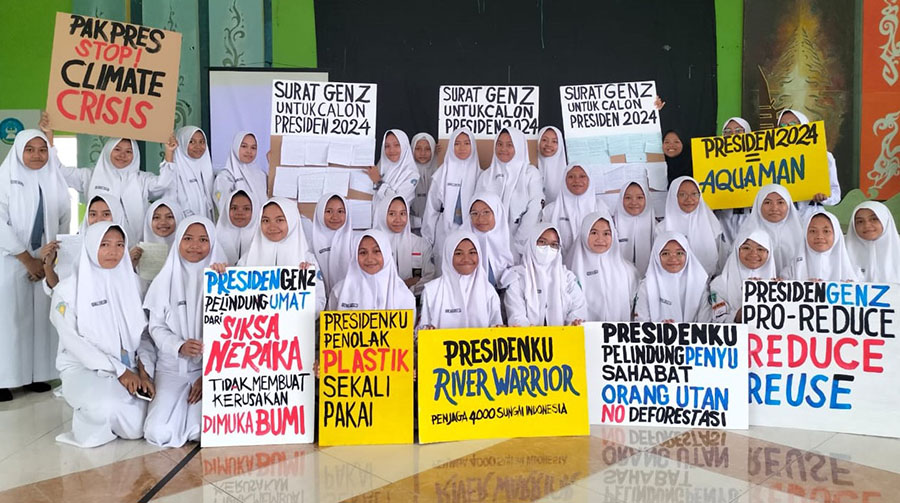 PAK PRES
STOP!
CLIMATE
CRISIS
SURAT GENZ
UNTUK CALON
PRESIDEN 2024
SURAT GENZ
UNTUK CALON
PRESIDEN 2024
SURAT GENZ
UNTUK CALON
PRESIDEN 2024
PRESIDEN 2024
=
AQUAMAN
PRESIDENGENZ
PELINDUNG UMAT
DARI SIKSA
NERAKA
TIDAK MEMBUAT
KERUSAKAN
DIMUKA BUMI
PRESIDENKU
PENOLAK
PLASTIK
SEKALI
PAKAI
PRESIDENKU
RIVER WARRIOR
PENJAGA 4000 SUNGAI INDONESIA
PRESIDENKU
PELINDUNG PENYU
SAHABAT
ORANG UTAN
NO DEFORESTASI
PRESIDENGENZ
PRO-REDUCE
REDUCE
REUSE